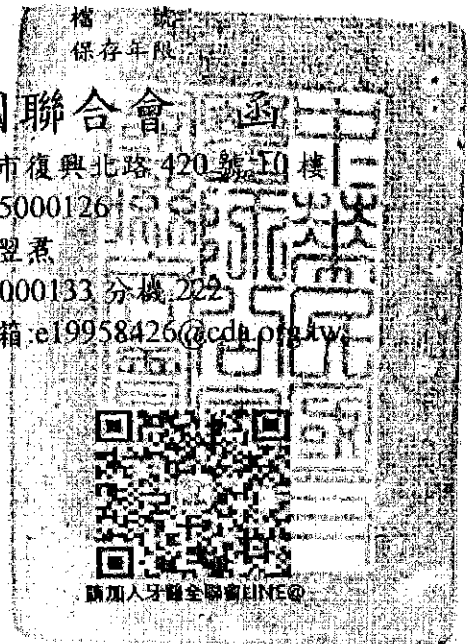 檔 號:
保存年限:
國聯合會 函
市復興北路 420 號 10 樓
5000126
翌熏
000133 分機 222
箱:e19958426@cda.org.tw
請加入牙醫全聯會LINE@